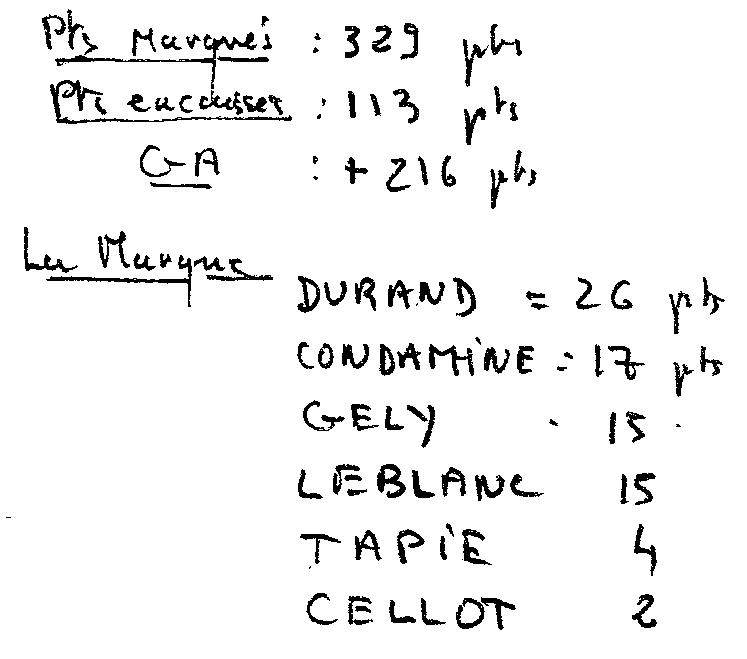 Pts Marqués : 329 pts
Pts encaisser : 113 pts
GA : + 216 pts
La Marque
DURAND = 26 pts
CONDAMINE = 17 pts
GELY . 15 .
LEBLANC 15
TAPIE 4
CELLOT 2